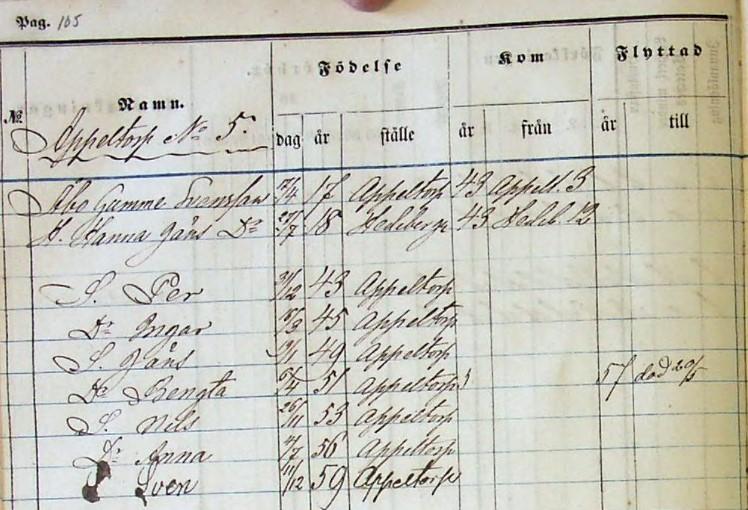 Pag. 105
Födelse Kom Flyttad
№ Namn. dag år ställe år från år till
Appeltorp No 5.
Åbo Gumme Svensson 17/4 17 Appeltorp 43 Appelt. 3
H. Hanna Jäns Dr 29/7 18 Hedeberga 43 Hedeb. 12
S. Per 31/12 43 Appeltorp
Dr Ingar 45 Appeltorp
S. Jäns 49 Appeltorp
Dr Bengta 51 Appeltorp 57 död 20/5
S. Nils 26/11 53 Appeltorp
Dr Anna 4/7 56 Appeltorp
S Sven 11/12 59 Appeltorp